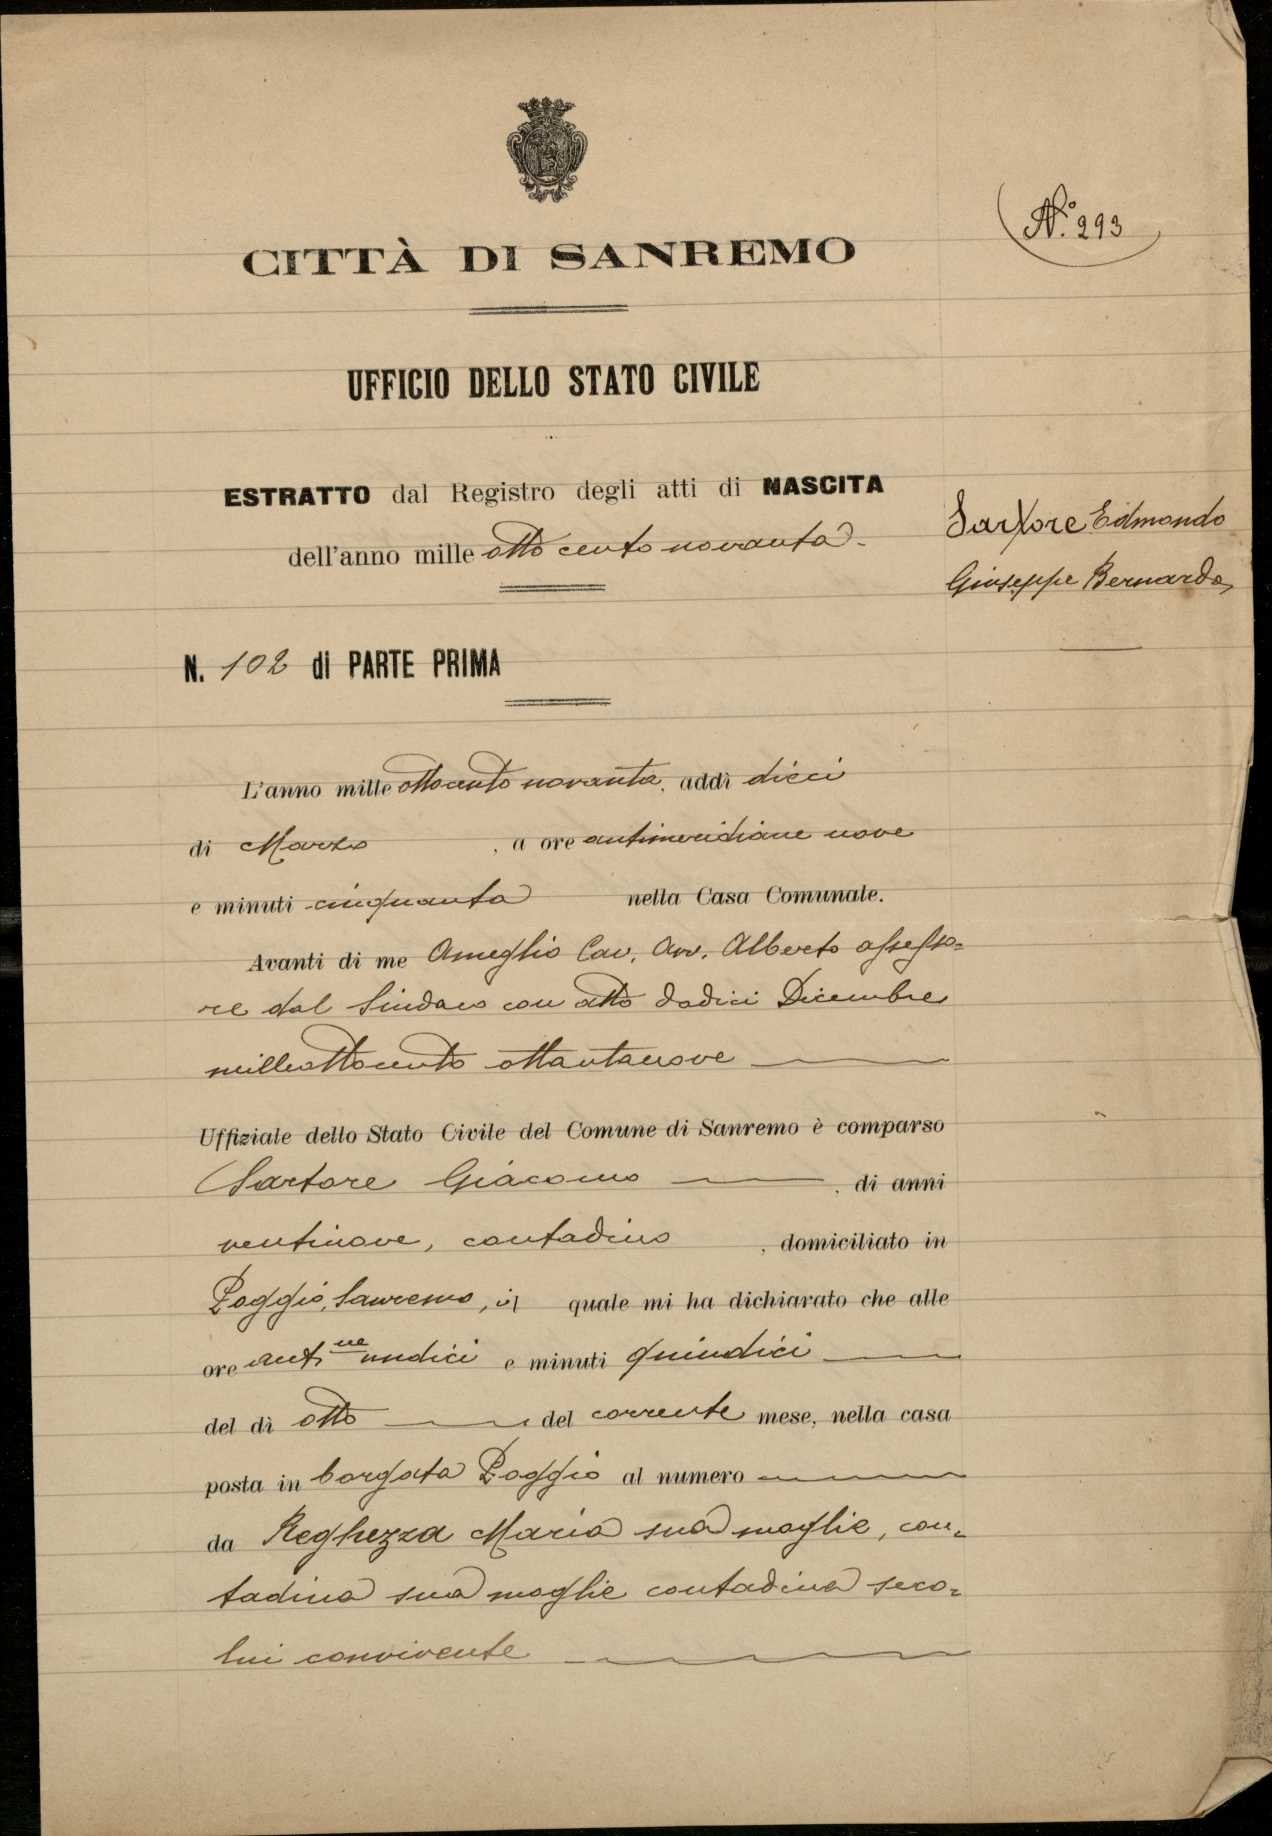 N.º 293
CITTÀ DI SANREMO
UFFICIO DELLO STATO CIVILE
ESTRATTO dal Registro degli atti di NASCITA
dell'anno mille otto cento novanta
Sartore Edmondo
Giuseppe Bernardo
N. 102 di PARTE PRIMA
L'anno mille ottocento novanta, addì dieci
di Marzo, a ore antimeridiane nove
e minuti cinquanta nella Casa Comunale.
Avanti di me Ameglio Cav. Avv. Alberto assesso=
re dal Sindaco con atto dodici Dicembre
milleottocento ottantanove
Uffiziale dello Stato Civile del Comune di Sanremo è comparso
Sartore Giacomo, di anni
ventinove, contadino, domiciliato in
Poggio, Sanremo, il quale mi ha dichiarato che alle
ore ant.ne undici e minuti quindici
del dì otto del corrente mese, nella casa
posta in borgata Poggio al numero
da Reghezza Maria sua moglie, con=
tadina sua moglie contadina seco=
lui convivente